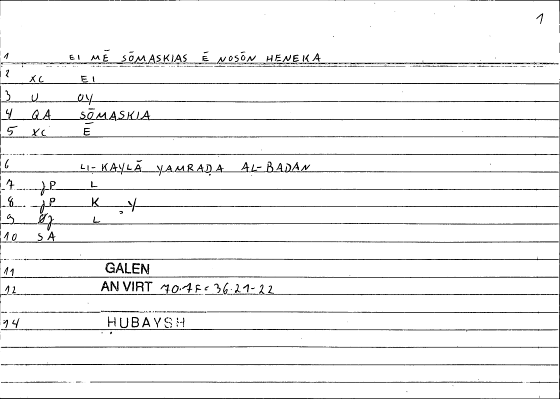 1
1 EI MĒ SŌMASKIAS Ē NOSŌN HENEKA
2 XC EI
3 U OY
4 QA SŌMASKIA
5 XC Ē
6 LI-KAYLĀ YAMRAḌA AL-BADAN
7 JP L
8 JP K Y
9 L
10 SA
11 GALEN
12 AN VIRT 36.21-22
14 ḤUBAYSH